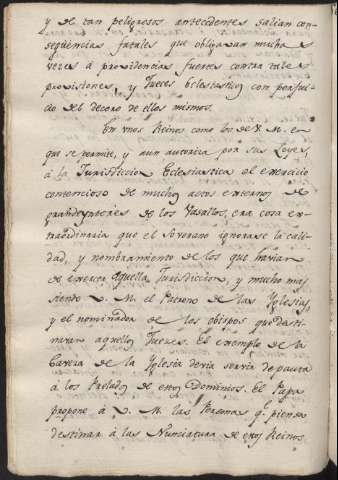 y de tan peligrosos antecedentes salian con-
seqüencias fatales que obligavan muchas
vezes à providencias fuertes contra tales
provisiones, y Jueces Eclesiasticos con perjui-
cio del decoro de ellos mismos.
En unos Reinos como los de V. M. en
que se permite, y aun autoriza por sus Leyes,
à la Jurisdiccion Eclesiastica el exercicio
contencioso de muchos actos externos de
grande interes de los Vasallos, era cosa ex-
traordinaria que el Soverano ignorase la cali-
dad, y nombramiento de los que havian
de exercer aquella Jurisdiccion, y mucho mas
siendo V. M. el Patrono de las Yglesias,
y el nominador de los obispos que desti-
navan aquellos Jueces. El exemplo de la
Cavera de la Yglesia devia servir de pauta
à los Prelados de estos Dominios. El Papa
propone à V. M. las Personas q.e piensa
destinar à las Nunciatura de estos Reinos